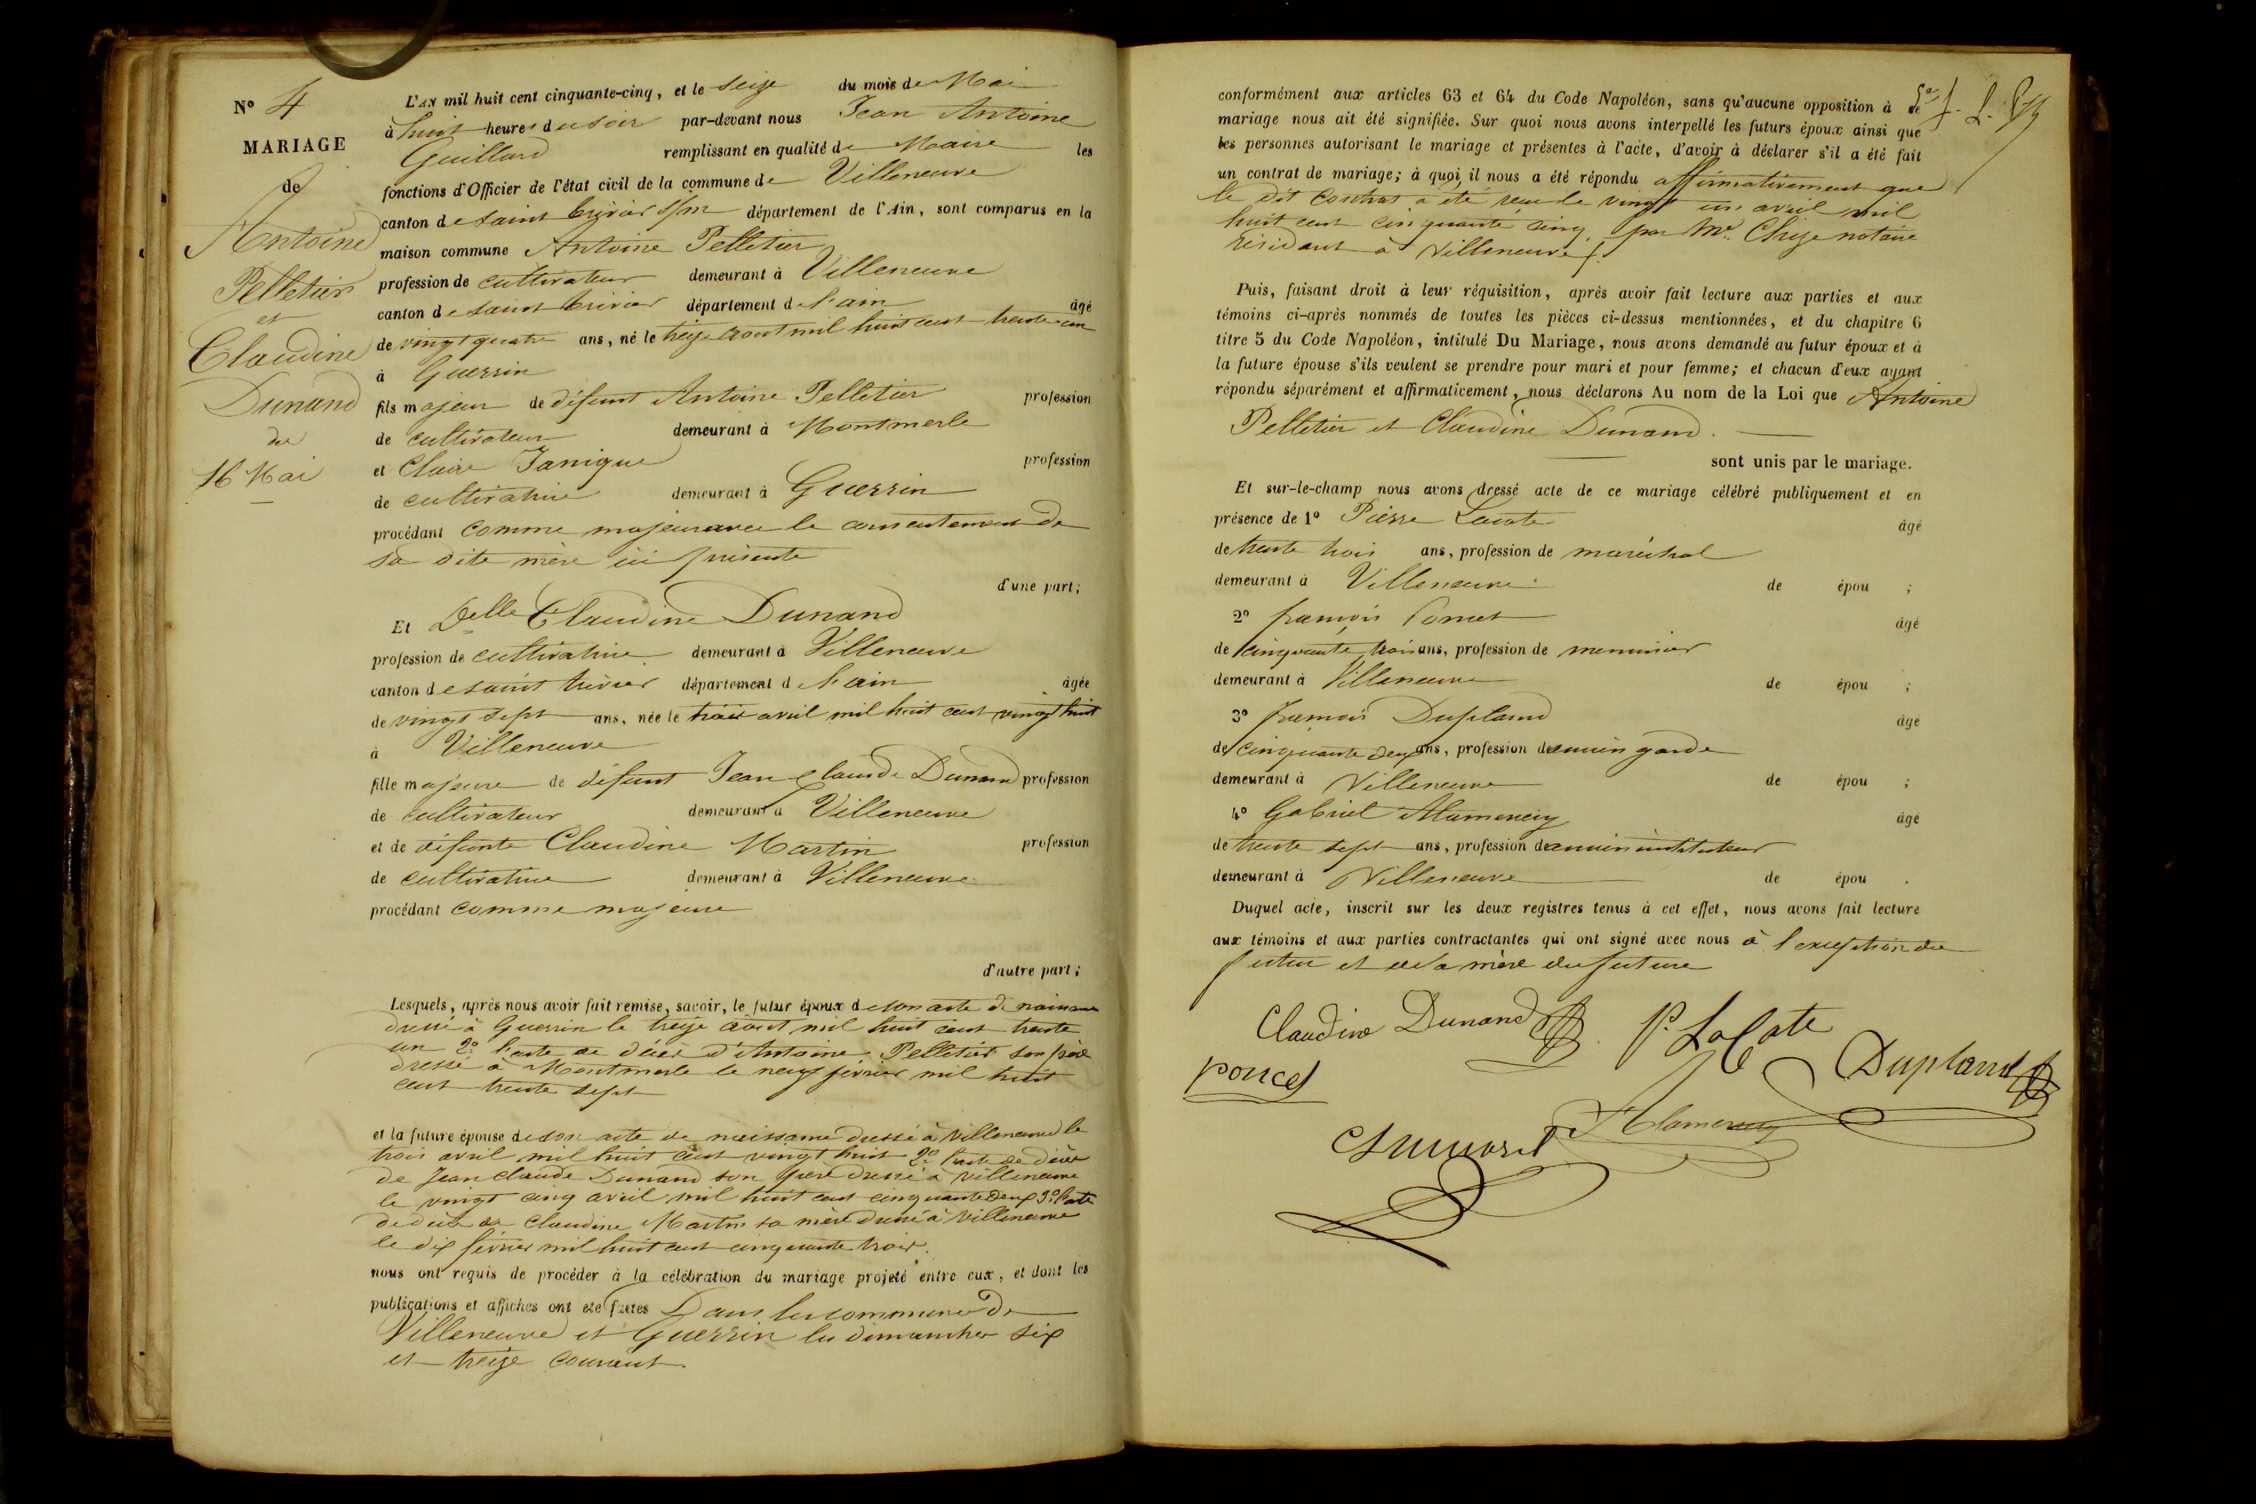 N° 4
MARIAGE
de
Antoine
Pelletier
et
Claudine
Dunand
du
16 Mai
L'AN mil huit cent cinquante-cinq, et le seize du mois de Mai
à huit heures du soir par-devant nous Jean Antoine
Guillard remplissant en qualité de Maire les
fonctions d'Officier de l'état civil de la commune de Villeneuve
canton de saint trivier s/m département de l'Ain, sont comparus en la
maison commune Antoine Pelletier
profession de cultivateur demeurant à Villeneuve
canton de saint trivier département de l'ain âgé
de vingt quatre ans, né le treize aout mil huit cent trente un
à Guerrin
fils majeur de défunt Antoine Pelletier profession
de cultivateur demeurant à Montmerle
et Claire Janique profession
de cultivatrice demeurant à Guerrin
procédant comme majeur avec le consentement de
sa dite mère ici présente
d'une part;
Et Delle Claudine Dunand
profession de cultivatrice demeurant à Villeneuve
canton de saint trivier département de l'ain âgée
de vingt sept ans, née le trois avril mil huit cent vingt huit
à Villeneuve
fille majeure de défunt Jean Claude Dunand profession
de cultivateur demeurant à Villeneuve
et de défunte Claudine Martin profession
de cultivatrice demeurant à Villeneuve
procédant comme majeure
d'autre part;
Lesquels, après nous avoir fait remise, savoir, le futur époux de son acte de naissance
dressé à Guerrin le treize aout mil huit cent trente
un 2° l'acte de décès d'Antoine Pelletier son père
dressé à Montmerle le neuf février mil huit
cent trente sept
et la future épouse de son acte de naissance dressé à Villeneuve le
trois avril mil huit cent vingt huit 2° l'acte de décès
de Jean Claude Dunand son père dressé à Villeneuve
le vingt cinq avril mil huit cent cinquante deux 3° l'acte
de décès de Claudine Martin sa mère dressé à Villeneuve
le dix février mil huit cent cinquante trois.
nous ont requis de procéder à la célébration du mariage projeté entre eux, et dont les
publications et affiches ont été faites Dans les communes de
Villeneuve et Guerrin les dimanches six
et treize courant.
conformément aux articles 63 et 64 du Code Napoléon, sans qu'aucune opposition à ce
mariage nous ait été signifiée. Sur quoi nous avons interpellé les futurs époux ainsi que
les personnes autorisant le mariage et présentes à l'acte, d'avoir à déclarer s'il a été fait
un contrat de mariage; à quoi il nous a été répondu affirmativement que
le dit contrat a été reçu le vingt un avril mil
huit cent cinquante cinq par Me. Chize notaire
résidant à Villeneuve.
Puis, faisant droit à leur réquisition, après avoir fait lecture aux parties et aux
témoins ci-après nommés de toutes les pièces ci-dessus mentionnées, et du chapitre 6
titre 5 du Code Napoléon, intitulé Du Mariage, nous avons demandé au futur époux et à
la future épouse s'ils veulent se prendre pour mari et pour femme; et chacun d'eux ayant
répondu séparément et affirmativement, nous déclarons Au nom de la Loi que Antoine
Pelletier et Claudine Dunand.
sont unis par le mariage.
Et sur-le-champ nous avons dressé acte de ce mariage célébré publiquement et en
présence de 1° Pierre Lacote âgé
de trente trois ans, profession de maréchal
demeurant à Villeneuve de épou ;
2° françois Poncet âgé
de cinquante trois ans, profession de menuisier
demeurant à Villeneuve de épou ;
3° françois Dupland âgé
de cinquante deux ans, profession de ancien garde
demeurant à Villeneuve de épou ;
4° Gabriel Alamercery âgé
de trente sept ans, profession d'ancien instituteur
demeurant à Villeneuve de épou .
Duquel acte, inscrit sur les deux registres tenus à cet effet, nous avons fait lecture
aux témoins et aux parties contractantes qui ont signé avec nous à l'exception du
futur et de la mère du futur
Claudine Dunand P. LaCote
poncet Dupland